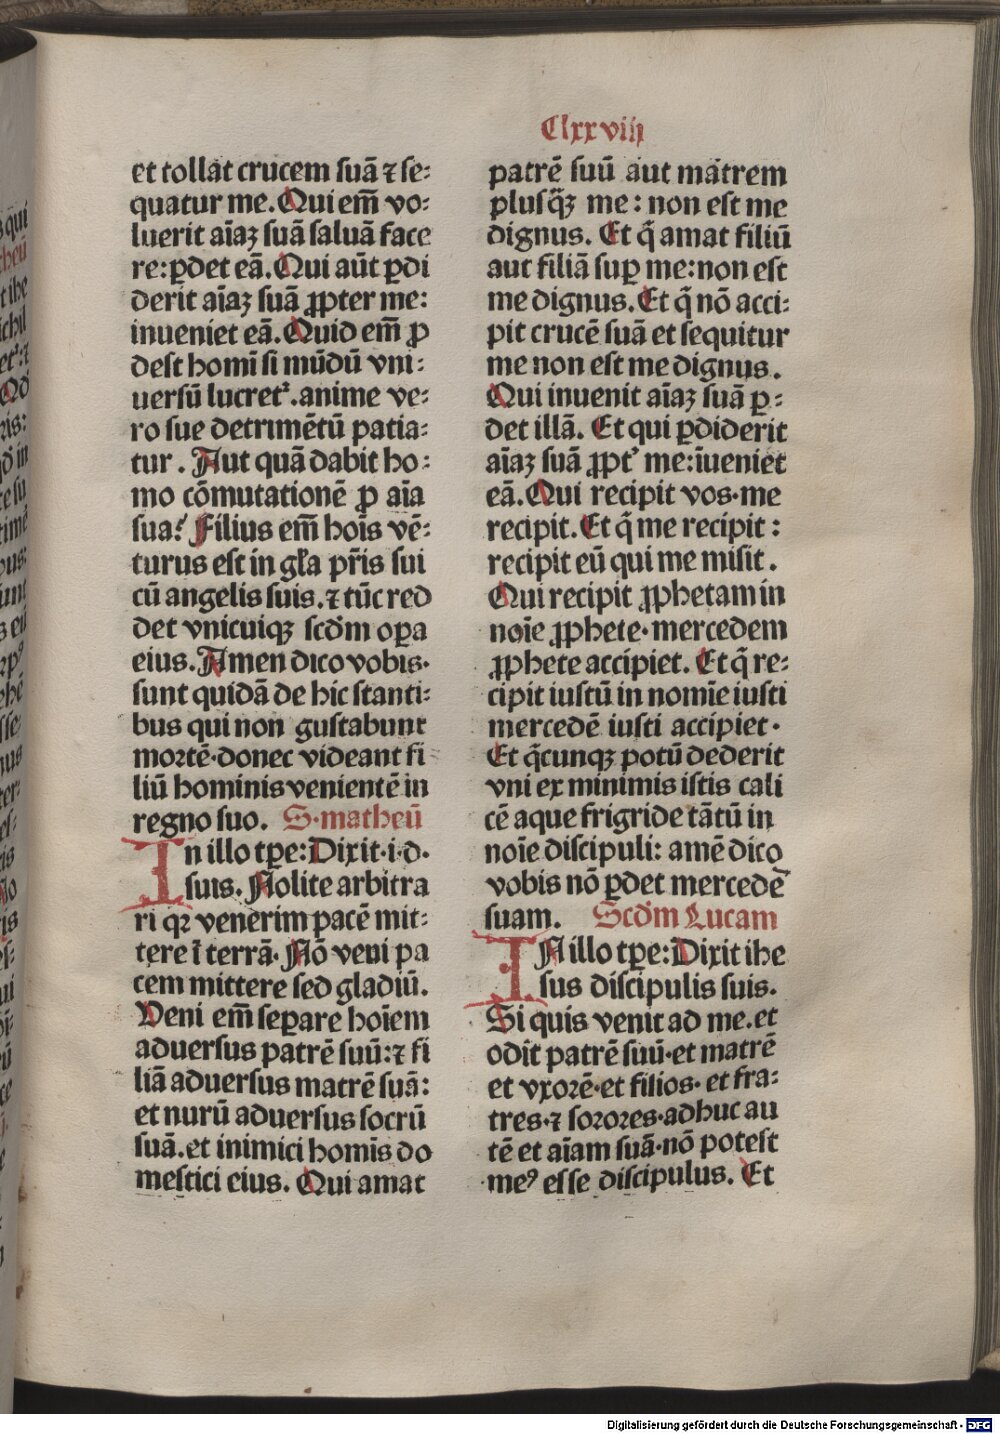 Clxxviiij
et tollat crucem suā ⁊ se⸗
quatur me. Qui em̄ vo⸗
luerit aīaꝫ suā saluā face
re: ꝑdet eā. Qui aūt ꝑdi
derit aīaꝫ suā ꝓpter me:
inueniet eā. Quid em̄ ꝓ
dest homī si mūdū vni⸗
uersū lucret᷑. anime ve⸗
ro sue detrimētū patia⸗
tur. Aut quā dabit ho⸗
mo cōmutationē ꝓ aīa
sua? Filius em̄ hoīs vē⸗
turus est in gl̄a pr̄is sui
cū angelis suis. ⁊ tūc red
det vnicuiqꝫ scd̄m oꝑa
eius. Amen dico vobis·
sunt quidā de hic stanti⸗
bus qui non gustabunt
mortē· donec videant fi
liū hominis venientē in
regno suo. S. matheū
In illo tꝑe: Dixit·i·d·
suis. Nolite arbitra
ri qꝛ venerim pacē mit⸗
tere ī terrā. Nō veni pa
cem mittere sed gladiū.
Veni em̄ seꝑare hoīem
aduersus patrē suū: ⁊ fi
liā aduersus matrē suā:
et nurū aduersus socrū
suā. et inimici homīs do
mestici eius. Qui amat
patrē suū aut matrem
plusq̄ꝫ me: non est me
dignus. Et q̄ amat filiū
aut filiā suꝑ me: non est
me dignus. Et q̄ nō acci⸗
pit crucē suā et sequitur
me non est me dignus.
Qui inuenit aīaꝫ suā ꝑ⸗
det illā. Et qui ꝑdiderit
aīaꝫ suā ꝓpt᷑ me: īueniet
eā. Qui recipit vos· me
recipit. Et q̄ me recipit:
recipit eū qui me misit.
Qui recipit ꝓphetam in
noīe ꝓphete· mercedem
ꝓphete accipiet. Et q̄ re⸗
cipit iustū in nomīe iusti
mercedē iusti accipiet·
Et q̄cunqꝫ potū dederit
vni ex minimis istis cali
cē aque frigride tātū in
noīe discipuli: amē dico
vobis nō ꝑdet mercedē
suam. Scd̄m Lucam
IN illo tꝑe: Dixit ihe
sus discipulis suis.
Si quis venit ad me. et
odit patrē suū· et matrē
et vxorē· et filios· et fra⸗
tres· ⁊ sorores· adhuc au
tē et aīam suā· nō potest
meꝰ esse discipulus. Et
Digitalisierung gefördert durch die Deutsche Forschungsgemeinschaft - DFG